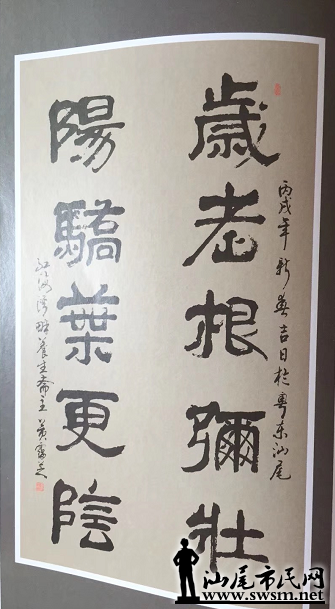 歲老根彌壯
陽驕葉更陰
丙戌年新英吉日於粵东汕尾
汕尾市民网
www.swsm.net